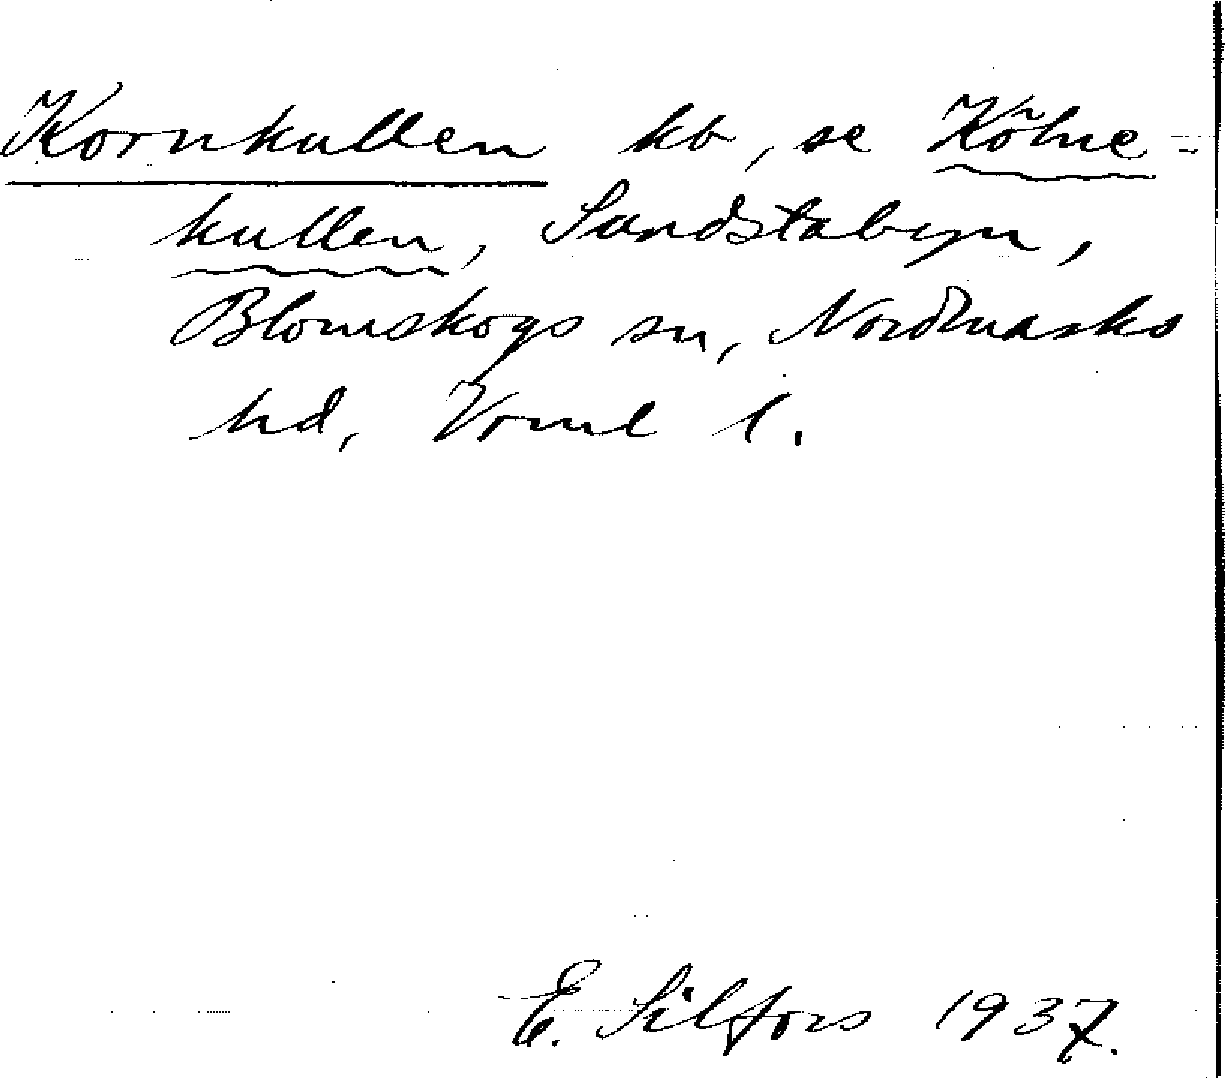 Kornkullen kb, se Kölne-
kullen, Sandstabyn,
Blomskogs sn, Nordmarks
hd, Vrml l.
E. Silfors 1937.